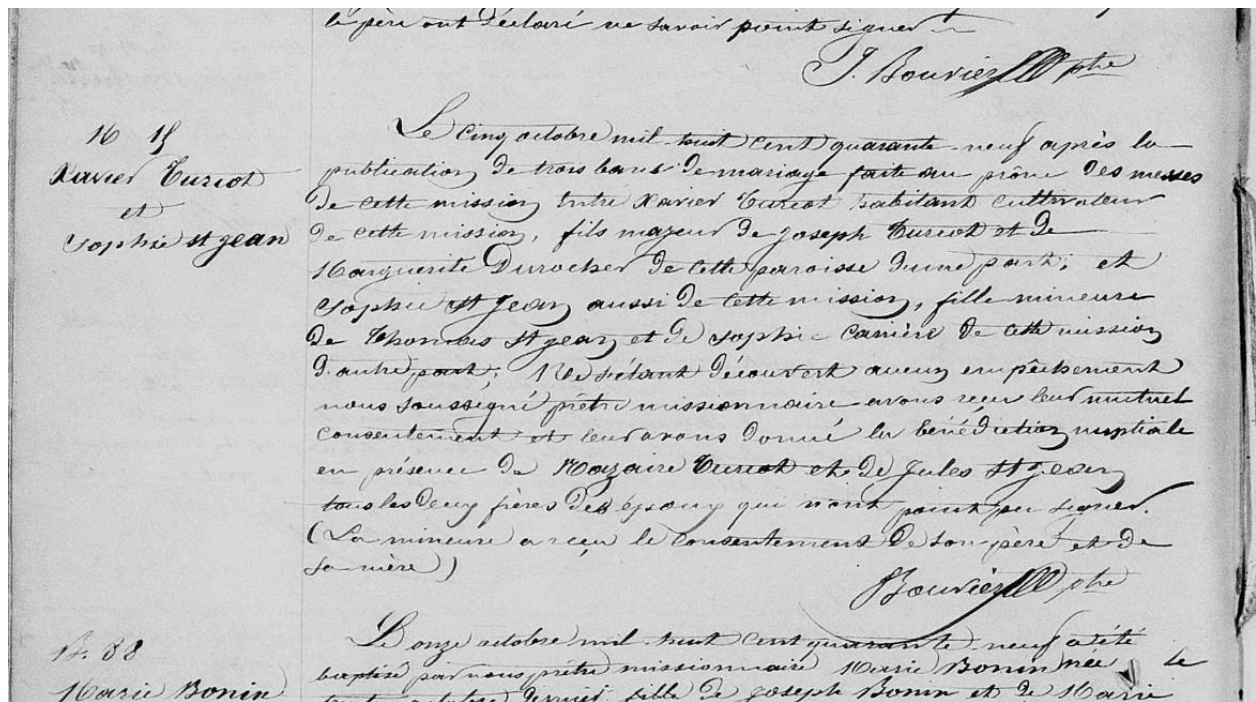 le père ont déclaré ne savoir point signer
J. Bouvier ptre
M 15
Xavier Turcot
et
Sophie St Jean
Le cinq octobre mil huit cent quarante-neuf après la
publication de trois bans de mariage faite au prône des messes
de cette mission entre Xavier Turcot habitant cultivateur
de cette mission, fils majeur de Joseph Turcot et de
Marguerite Durocher de cette paroisse d'une part; et
Sophie St Jean aussi de cette mission, fille mineure
de Thomas St Jean et de Sophie Carrière de cette mission
d'autre part; Ne s'étant découvert aucun empêchement
nous soussigné prêtre missionnaire avons reçu leur mutuel
consentement et leur avons donné la bénédiction nuptiale
en présence de Nazaire Turcot et de Jules St Jean
tous les deux frères des époux qui n'ont point pu signer.
(La mineure a reçu le consentement de son père et de
sa mère)
Bouvier ptre
B. 88
Marie Bonin
Le onze octobre mil huit cent quarante-neuf a été
baptisé par nous prêtre missionnaire Marie Bonin née le
octobre dernier fille de Joseph Bonin et de Marie